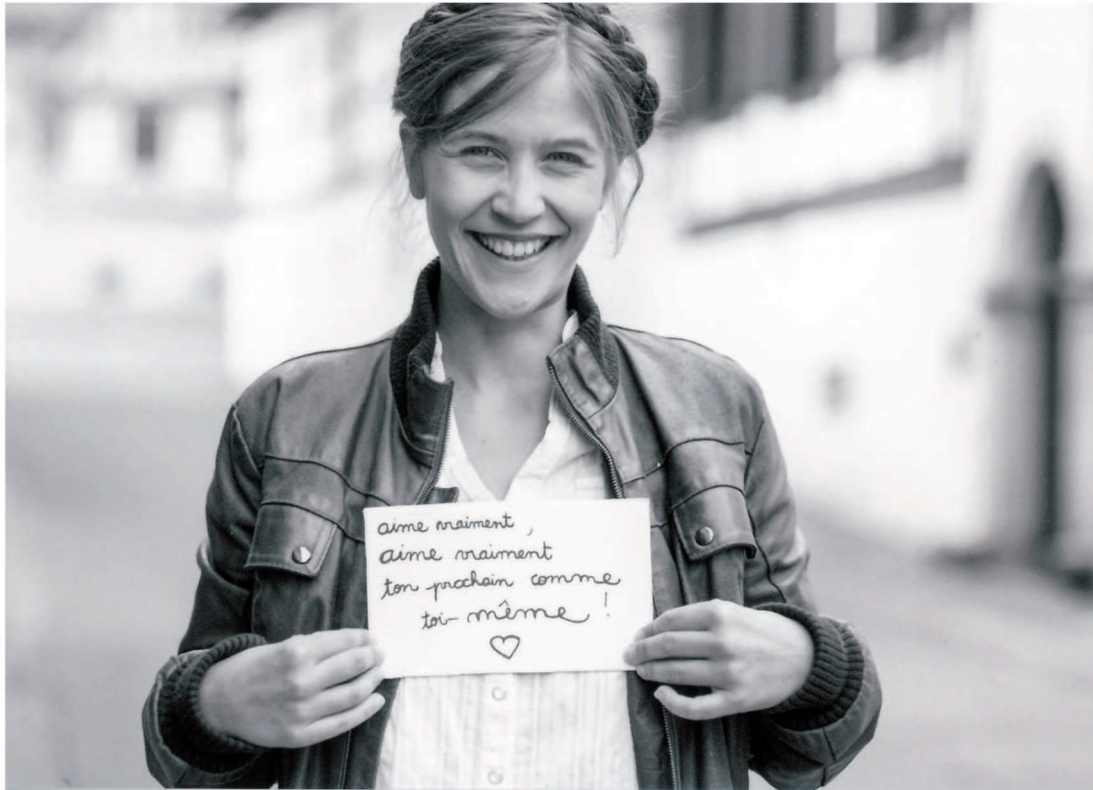 aime vraiment,
aime vraiment
ton prochain comme
toi-même !